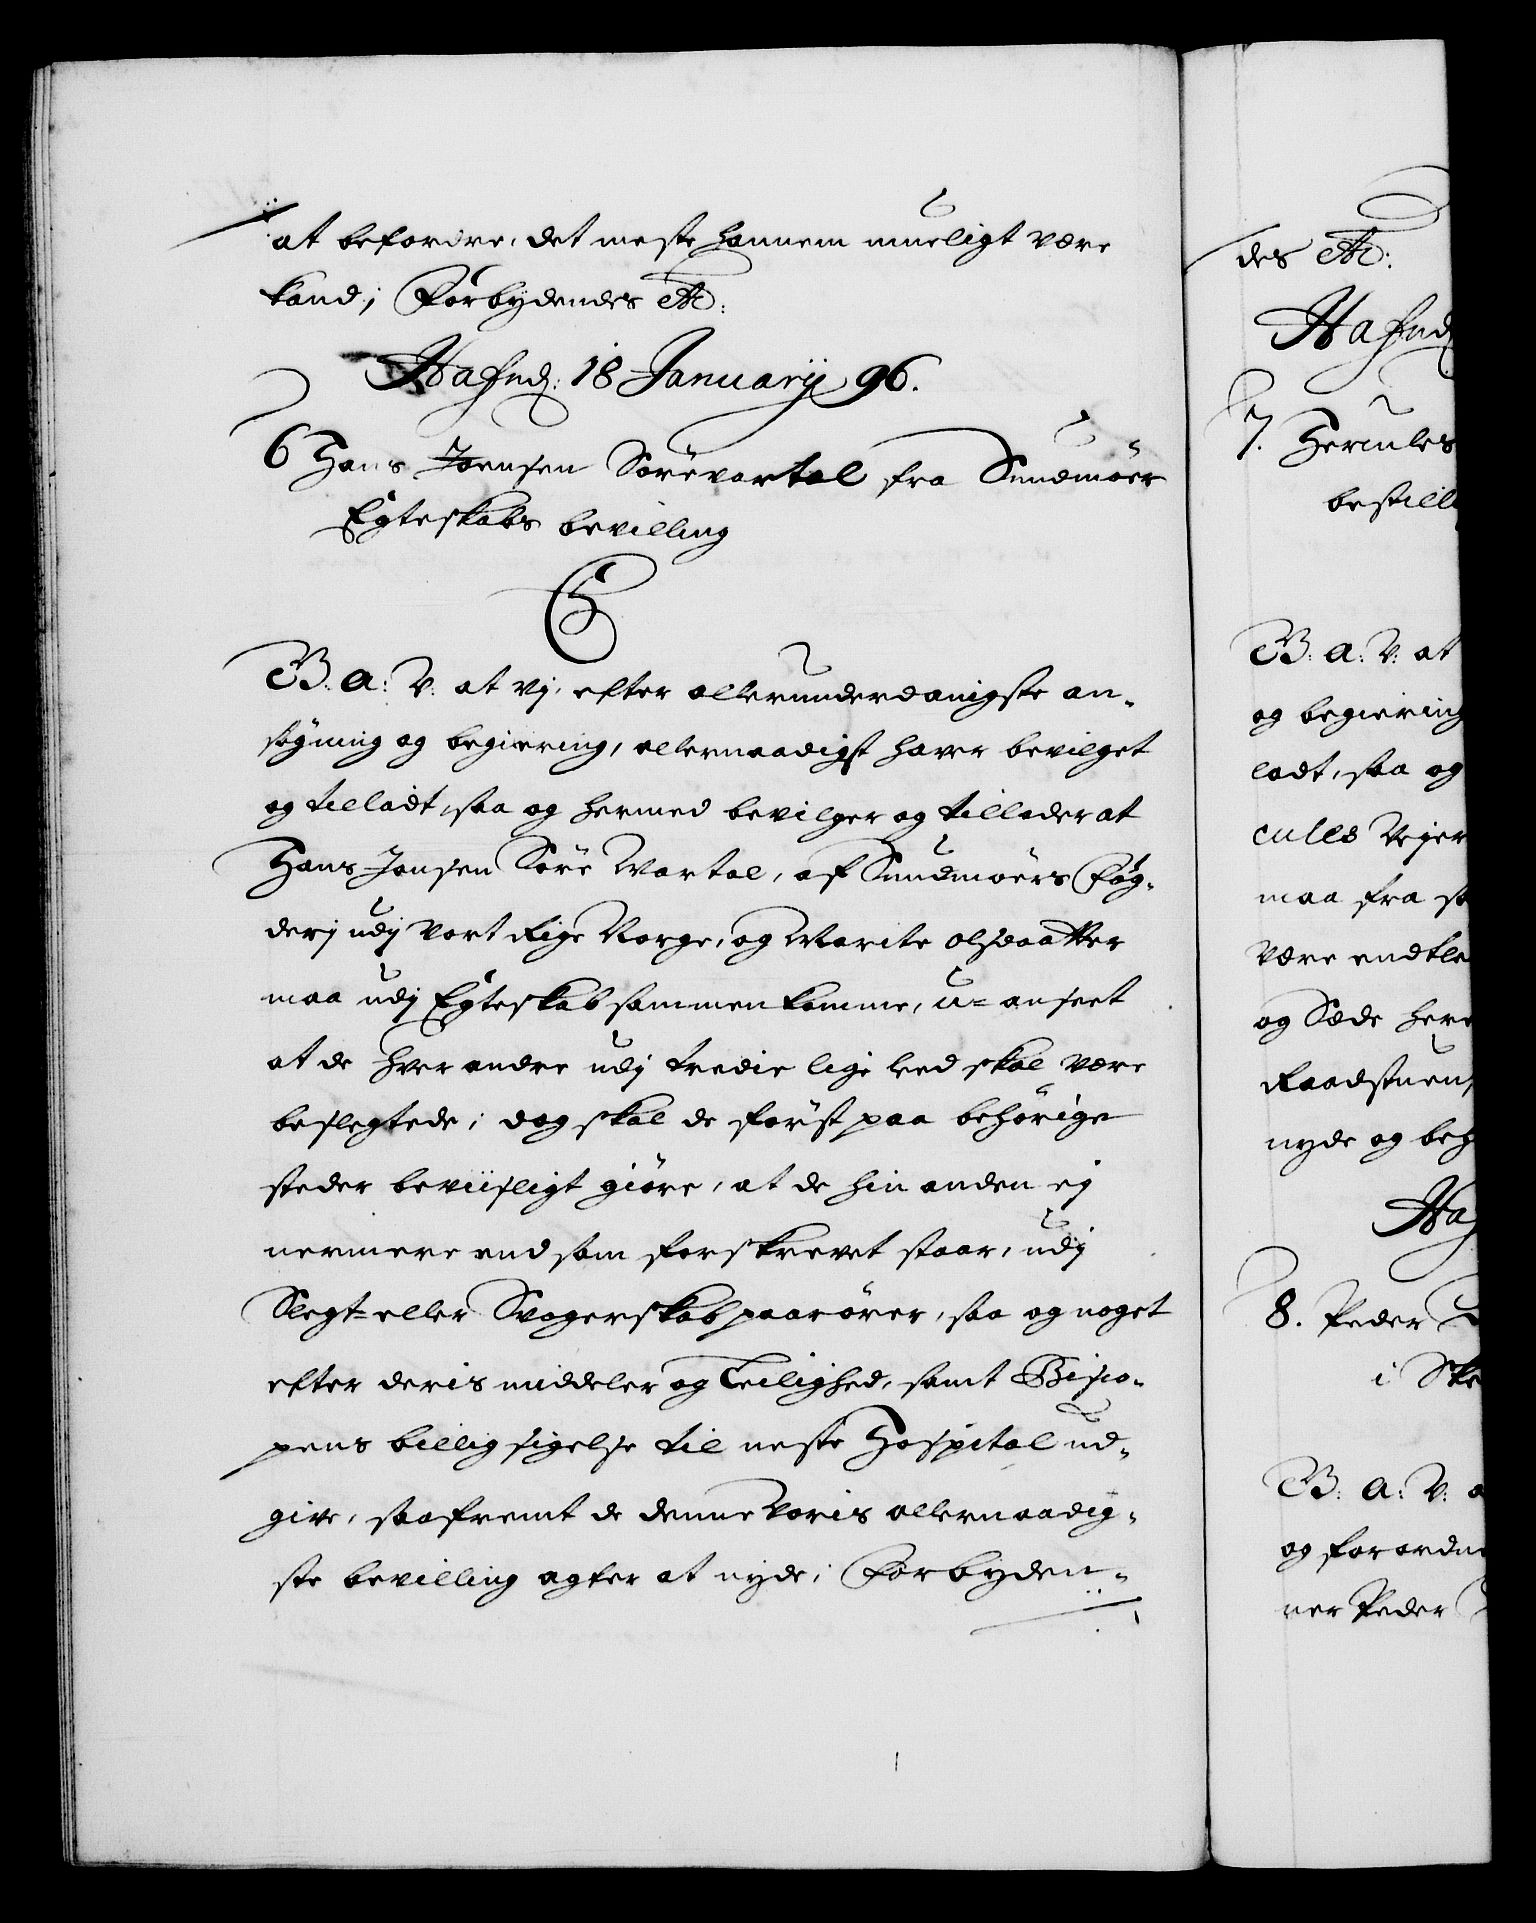 at befordre, det meste hannem mueligt være
kand; Forbydendes etc:
Hafnd: 18 January 96.
6 Hans Joensen Sörevartal fra Sundmöer
Egteskabs bevilling
C5
G. a: V: at vj, efter allerunderdanigste an-
søgning og begiering, allernaadigst haver bevilget
og tilladt, saa og hermed bevilger og tillader at
Hans Jonsen Söre Wartal, af Sundmöers Fog-
derj udj vort Rige Norge, og Marite olsdaatter
maa udj Egteskab sammen komme, u-anseet
at de hver andre udj tredie lige leed skal være
beslegtede; dog skal de först paa behörige
steder beviisligt giöre, at de hin anden ej
nermere end som forskrevet staar, udj
Slegt- eller Svogerskab paarörer, saa og noget
efter deris middeler og Leilighed, samt Bisco-
pens billig sigelse til neste Hospital ud-
give, saafremt de denne Voris allernaadig-
ste bevilling agter at nyde; Forbyden-
des etc:
Hafnd
7. Hercules
bestill
G: a: V: at
og begiering
ladt, saa og
cules Wejer
maa fra
være
og Sæde her
Raadstuen
nyde og beh
Haf
8. Peder
i
G: a: V:
og forordn
ner Peder